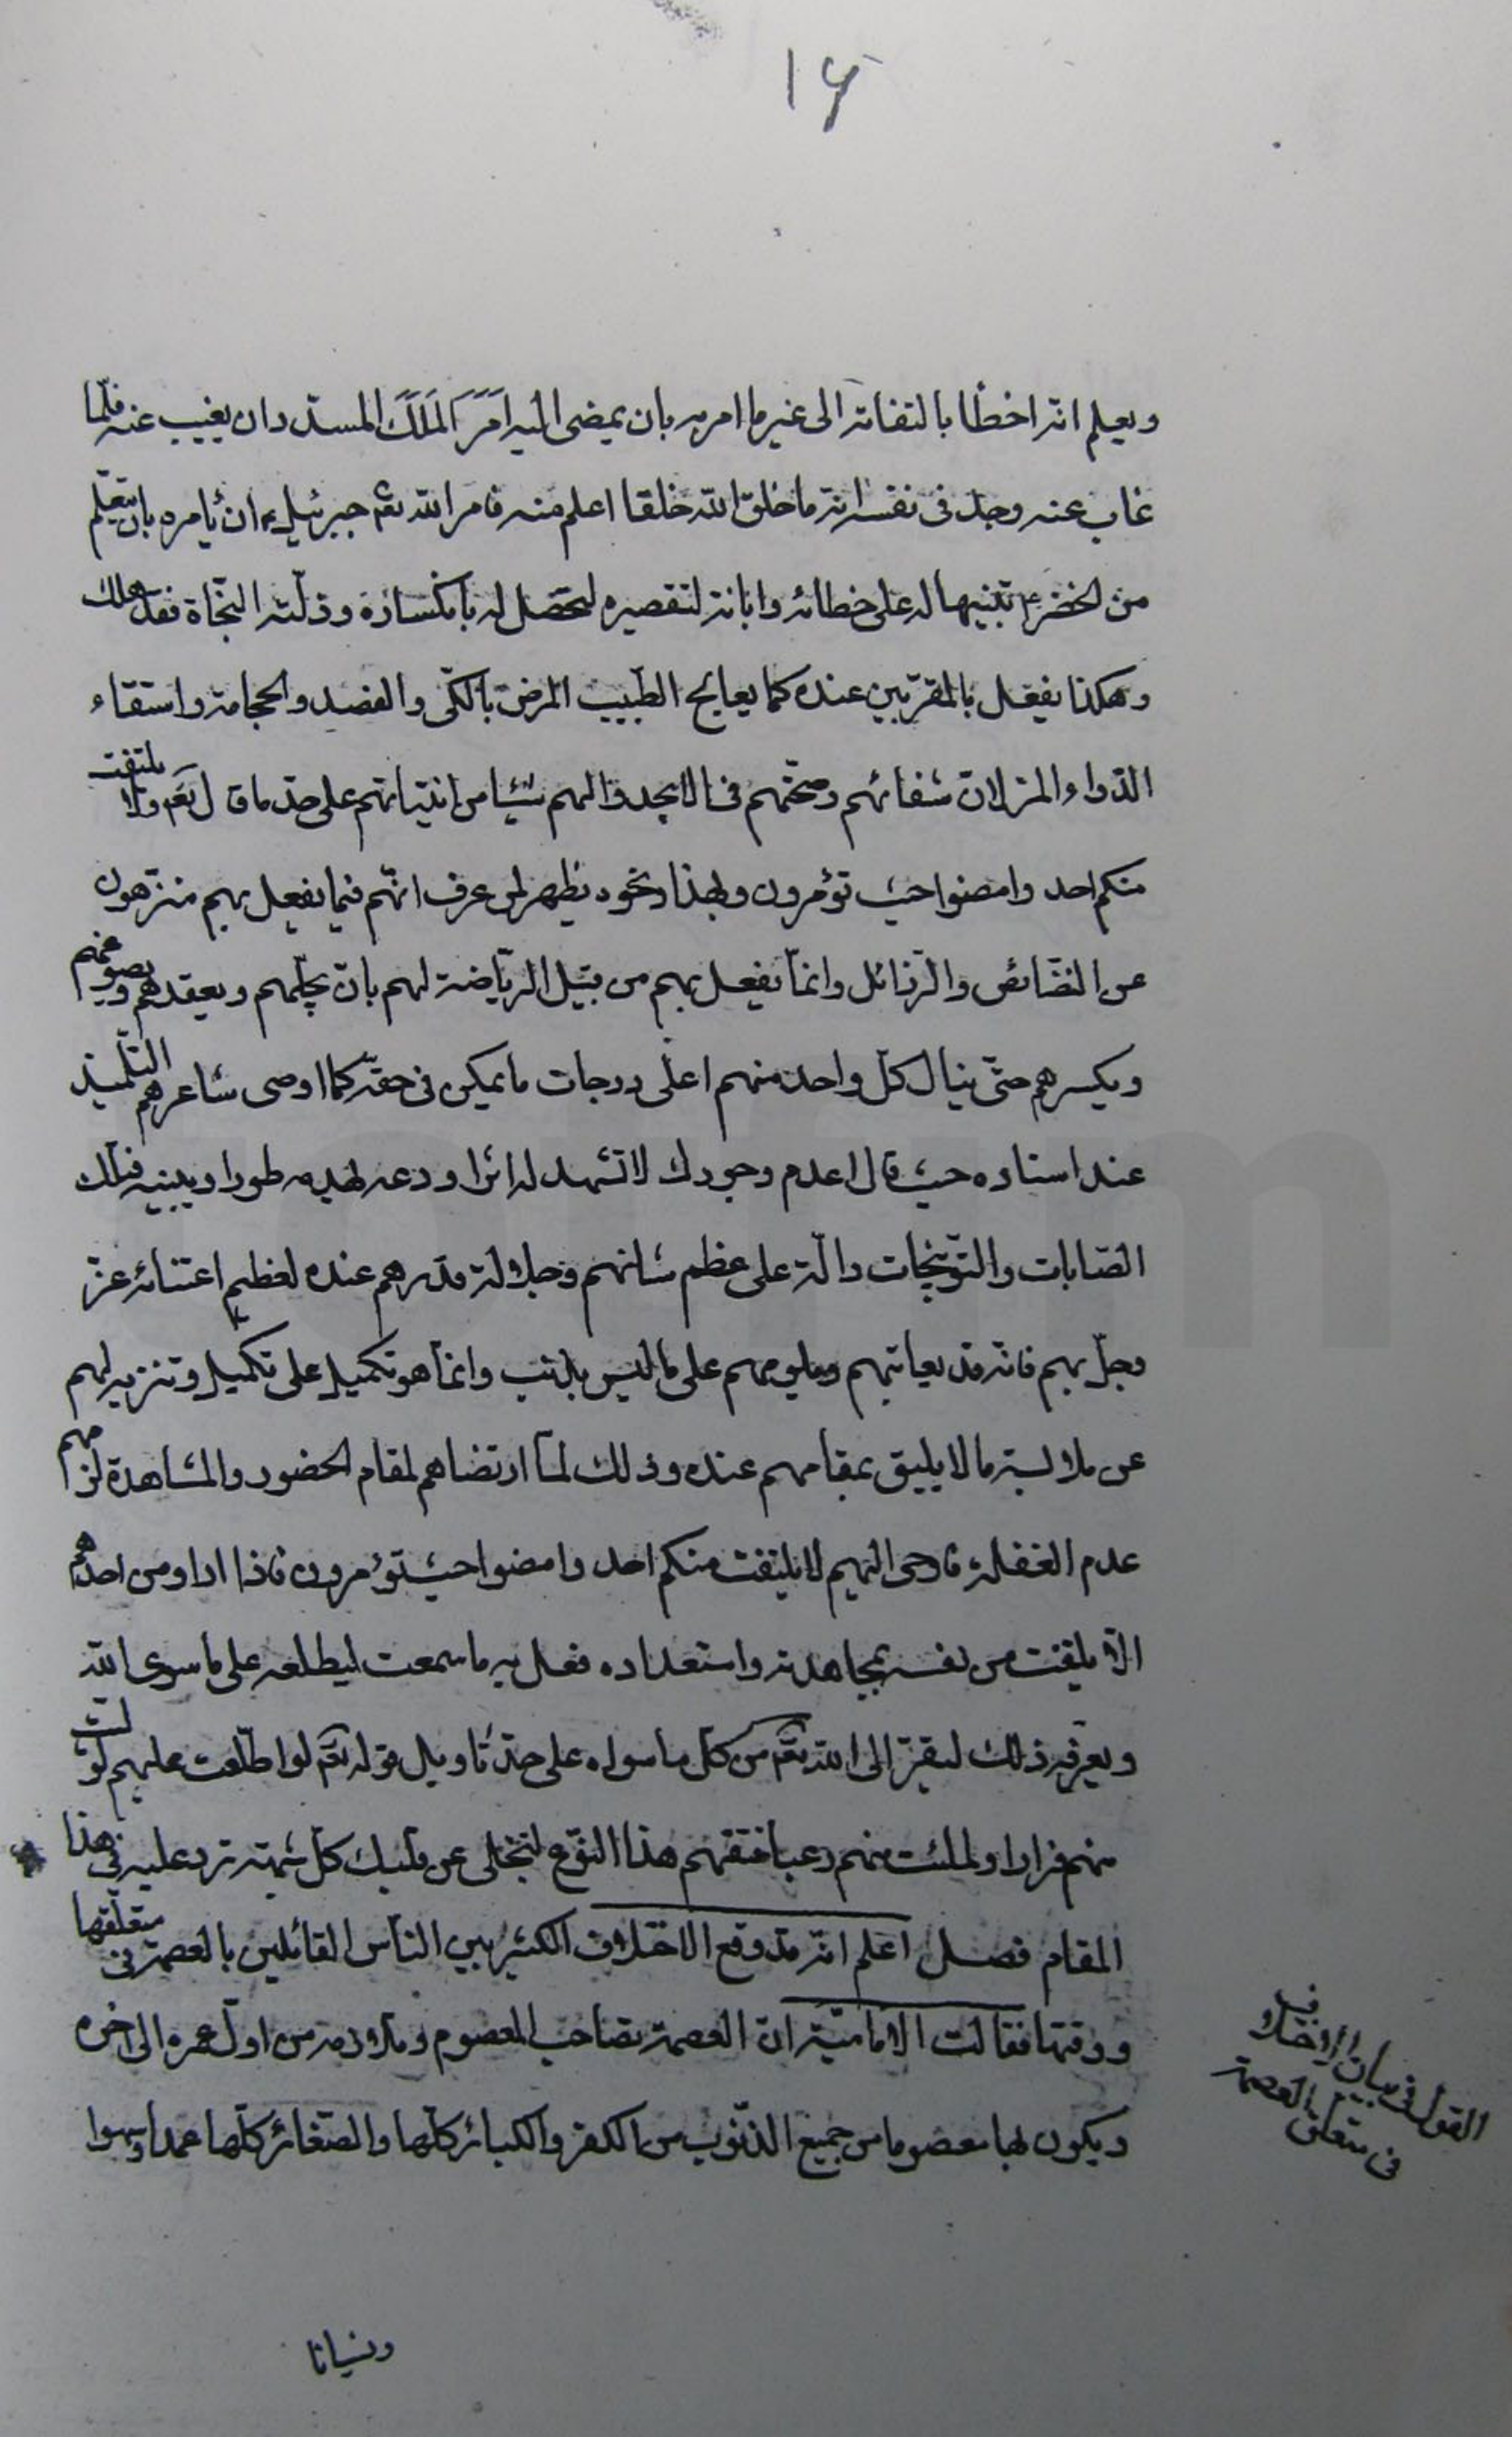 ١٦
ويعلم انه اخطا بالتفاته الى غير ما امر به بان يمضى اليه امر الملك المسدد ان يغيب عنه فلما
غاب عنه وجد فى نفسه انه ما خلق الله خلقا اعلم منه فامر الله تعم جبرئيل ع ان يأمره بان يتعلم
من الخضر ع تنبيها له على خطائه وابانة لتقصيره ليحصل له بانكساره وذلته النجاة فقد هلك
وهكذا يفعل بالمقربين عنده كما يعالج الطبيب المرض بالكى والفصد والحجامة واستقاء
الدواء المر لان شفائهم وصحتهم فى ان لا يجدوا لهم شيئا من انياتهم على حد ما قال تعم ولا يلتفت
منكم احد وامضوا حيث تؤمرون ولهذا ونحوه يظهر لمن عرف انهم فيما يفعل بهم منزهون
عن النقائص والرذائل وانما يفعل بهم من قبيل الرياضة لهم بان يحلهم ويعقدهم ويصوغهم
ويكسرهم حتى ينال كل واحد منهم اعلى درجات ما يمكن فى حقه كما اوصى شاعرهم التلميذ
عند استاده حيث قال اعدم وجودك لا تشهد له اثرا ودعه يهدمه طورا ويبنيه فتلك
العتابات والتوبيخات دالة على عظم شانهم وجلالة قدرهم عنده لعظيم اعتنائه عز
وجل بهم فانه قد يعاتبهم ويلومهم على ما ليس بذنب وانما هو تكميل على تكميل وتنزيه لهم
عن ملابسة ما لا يليق بمقامهم عنده وذلك لما ارتضاهم لمقام الحضور والمشاهدة لزمهم
عدم الغفلة فاوحى اليهم لا يلتفت منكم احد وامضوا حيث تؤمرون فاذا اراد من احدهم
الا يلتفت من نفسه بمجاهدته واستعداده فعل به ما سمعت ليطلعه على ما سوى الله
ويعرفه ذلك ليفر الى الله تعم من كل ما سواه على حد تاويل قوله تعم لو اطلعت عليهم لوليت
منهم فرارا ولملئت منهم رعبا فتفهم هذا النوع لتنجلى عن قلبك كل شبهة ترد عليه فى هذا
المقام فصل اعلم انه قد وقع الاختلاف الكثير بين الناس القائلين بالعصمة فى متعلقها
ووقتها فقالت الامامية ان العصمة تصاحب المعصوم وملازمة من اول عمره الى اخره
ويكون بها معصوما من جميع الذنوب من الكفر والكبائر كلها والصغائر كلها عمدا وسهوا
القول فى بيان الاختلاف
فى متعلق العصمة
ونسيانا